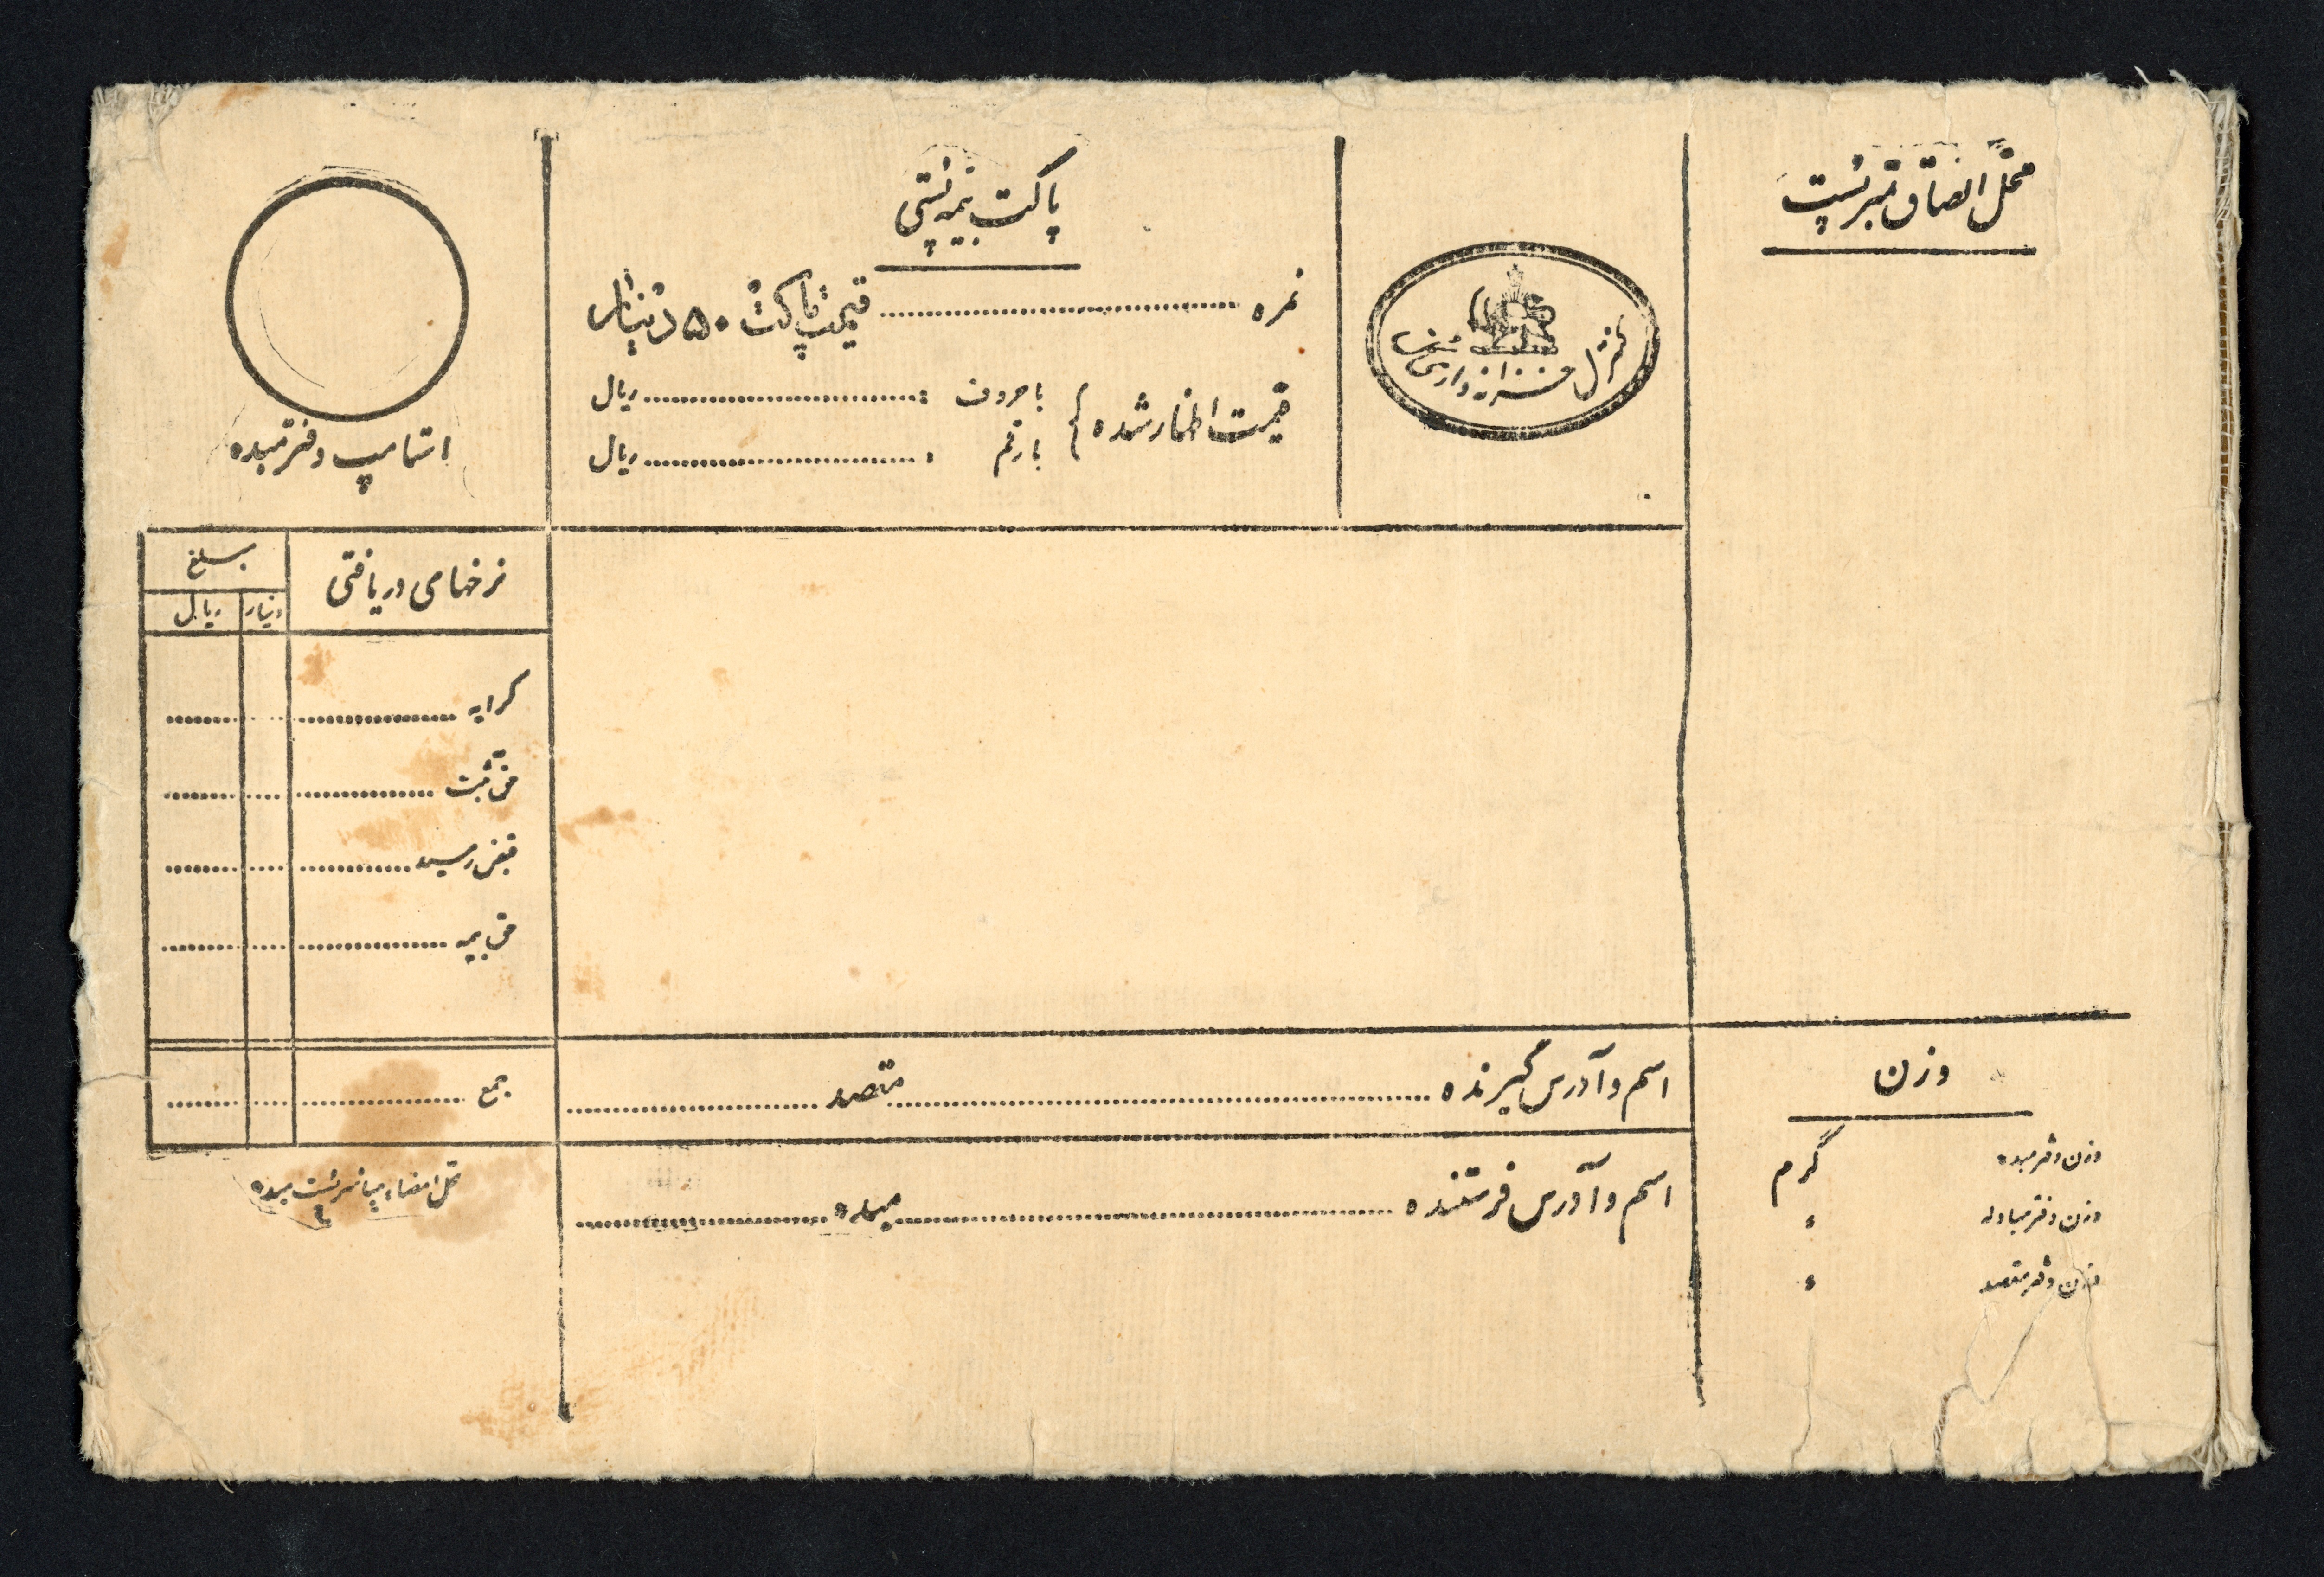 محل الصاق تمبر پست
پاکت بیمه پستی
نمره ........ قیمت پاکت ۵۰ دینار
قیمت اظهار شده {
با حروف : ........ ریال
با رقم : ........ ریال
کنترل خزانه‌داری
استامپ دفتر مبدء
نرخهای دریافتی
مبلغ
دینار
ریال
کرایه ........
حق ثبت ........
قبض رسید ........
حق بیمه ........
جمع ........
محل امضاء مباشر پست مبدء
اسم و آدرس گیرنده ........ مقصد ........
اسم و آدرس فرستنده ........ مبدء ........
وزن
وزن دفتر مبدء گرم
وزن دفتر مبادله "
وزن دفتر مقصد "